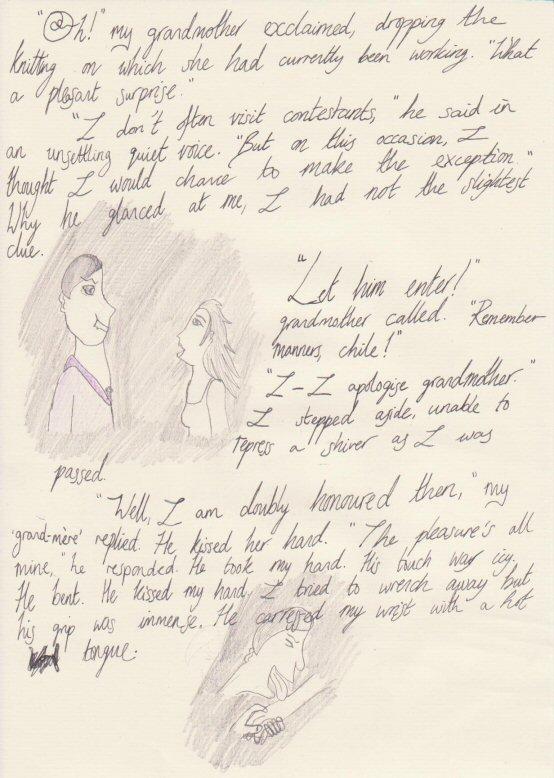 "Oh!" my grandmother exclaimed, dropping the
knitting on which she had currently been working. "What
a pleasant surprise."
"I don't often visit contestants," he said in
an unsettling quiet voice. "But on this occasion, I
thought I would chance to make the exception."
Why he glanced at me, I had not the slightest
clue.
"Let him enter!"
grandmother called. "Remember
manners, chile!"
"I-I apologise grandmother."
I stepped aside, unable to
repress a shiver as I was
passed.
"Well, I am doubly honoured then," my
'grand-mère' replied. He kissed her hand. "The pleasure's all
mine," he responded. He took my hand. His touch was icy.
He bent. He kissed my hand. I tried to wrench away but
his grip was immense. He carressed my wrist with a hot
tongue.